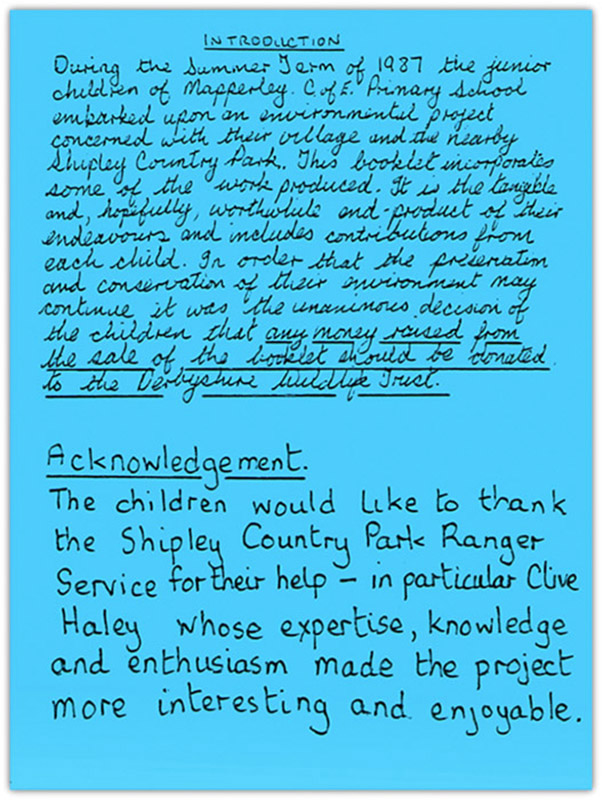 INTRODUCTION
During the Summer Term of 1987 the junior
children of Mapperley. C of E. Primary School
embarked upon an environmental project
concerned with their village and the nearby
Shipley Country Park. This booklet incorporates
some of the work produced. It is the tangible
and, hopefully, worthwhile end-product of their
endeavours and includes contributions from
each child. In order that the preservation
and conservation of their environment may
continue it was the unanimous decision of
the children that any money raised from
the sale of the booklet should be donated
to the Derbyshire Wildlife Trust.
Acknowledgement.
The children would like to thank
the Shipley Country Park Ranger
Service for their help – in particular Clive
Haley whose expertise, knowledge
and enthusiasm made the project
more interesting and enjoyable.